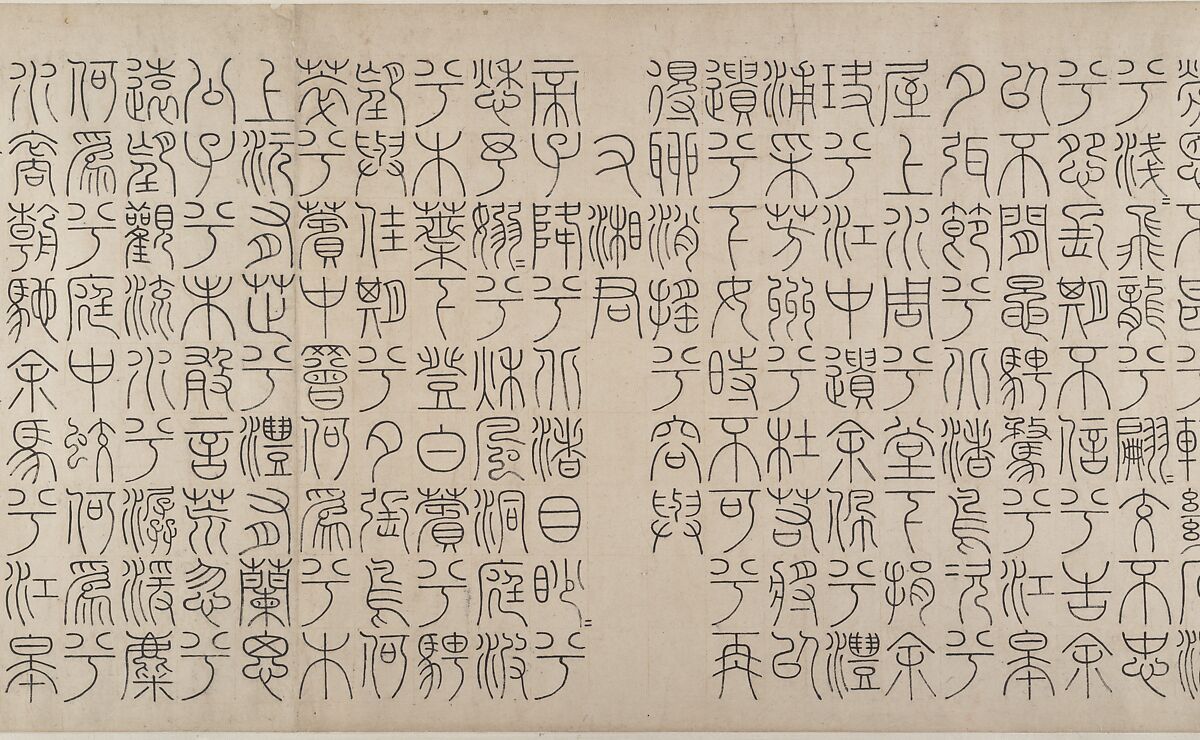 兮淺=飛龍兮翩=交不忠
兮怨長期不信兮告余
以不閒鼂騁騖兮江皋
夕弭節兮北渚鳥次兮
屋上水周兮堂下捐余
玦兮江中遺余佩兮澧
浦采芳洲兮杜若將以
遺兮下女時不可兮再
得聊消搖兮容與
右湘君
帝子降兮北渚目眇=兮
愁予嫋=兮秋風洞庭波
兮木葉下登白薠兮騁
望與佳期兮夕張鳥何
萃兮薠中罾何爲兮木
上沅有芷兮澧有蘭思
公子兮未敢言荒忽兮
遠望觀流水兮潺湲麋
何爲兮庭中蛟何爲兮
水裔朝馳余馬兮江皋